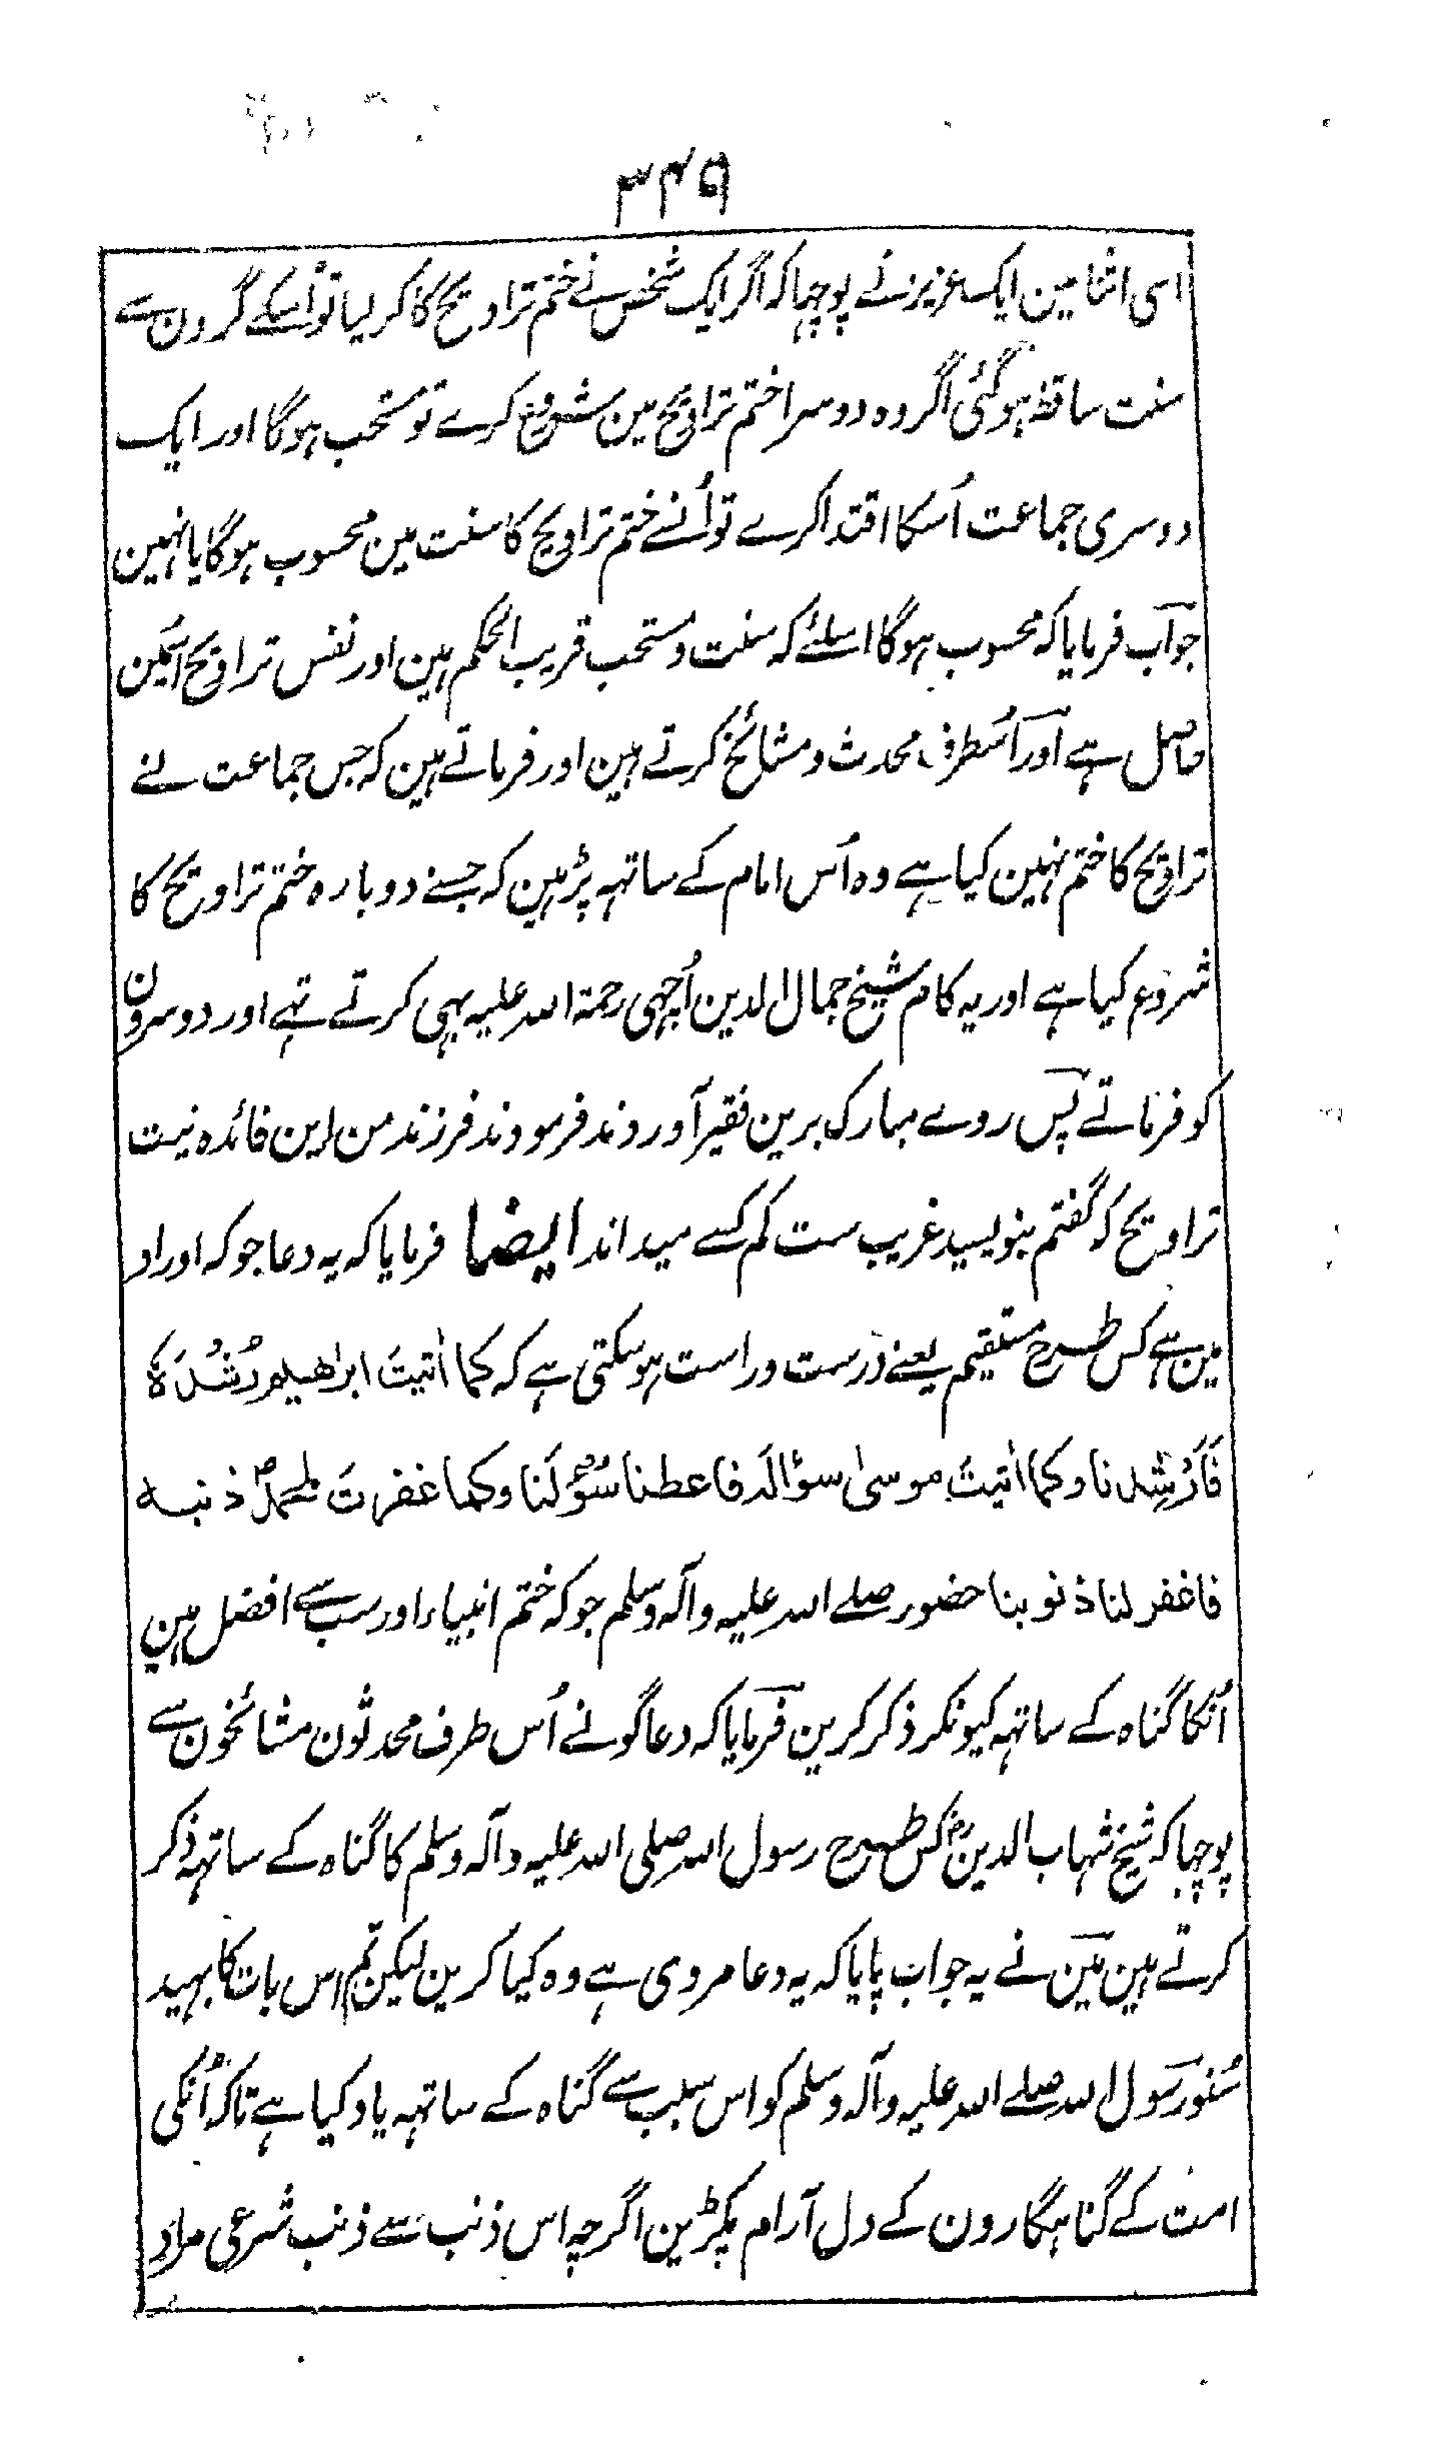 ۳۴۹
اسی اثنا مین ایک عزیز نے پوچہا کہ اگر ایک شخص نے ختم تراویح کا کر لیا تو اُسکے گردن سے
سنت ساقط ہو گئی اگر وہ دوسرا ختم تراویح مین شروع کرے تو مستحب ہوگا اور ایک
دوسری جماعت اُسکا اقتدا کرے تو اُنسے ختم تراویح کا سنت مین محسوب ہوگا یا نہین
جواب فرمایا کہ محسوب ہوگا اسلئے کہ سنت و مستحب قریب الحکم ہین اور نفس تراویح اسمین
حاصل ہے اور اُسطرف محدث و مشائخ کرتے ہین اور فرماتے ہین کہ جس جماعت نے
تراویح کا ختم نہین کیا ہے وہ اُس امام کے ساتہہ پڑہین کہ جسنے دوبارہ ختم تراویح کا
شروع کیا ہے اور یہ کام شیخ جمال الدین اُچہی رحمۃ اللہ علیہ بہی کرتے تہے اور دوسرون
کو فرماتے پس روے مبارک برین فقیر آوردند فرمودند فرزند من این فائدہ نیت
تراویح کہ گفتم بنویسید غریب ست کم کسے میداند ایضا فرمایا کہ یہ دعا جو کہ اوراد
مین ہے کس طرح مستقیم یعنے درست و راست ہو سکتی ہے کہ کما اٰتیتَ ابراھیم رُشُدَہٗ
فَاَرْشِدنا وکما اٰتیتَ موسیٰ سؤالہ فاعطنا سُؤْلَنا وکما غفرتَ لمحمدٍ ذنبہ
فاغفر لنا ذنوبنا حضور صلے اللہ علیہ وآلہ وسلم جو کہ ختم انبیاء اور سب سے افضل ہین
اُنکا گناہ کے ساتہہ کیونکر ذکر کرین فرمایا کہ دعاگو نے اُس طرف محدثون مشائخون سے
پوچہا کہ شیخ شہاب الدینؒ کس طرح رسول اللہ صلی اللہ علیہ وآلہ وسلم کا گناہ کے ساتہہ ذکر
کرتے ہین مین نے یہ جواب پایا کہ یہ دعا مروی ہے وہ کیا کرین لیکن تم اس بات کا بہید
سُنو رسول اللہ صلے اللہ علیہ وآلہ وسلم کو اس سبب سے گناہ کے ساتہہ یاد کیا ہے تاکہ اُنکی
امت کے گناہگارون کے دل آرام پکڑین اگرچہ اس ذنب سے ذنب شرعی مراد